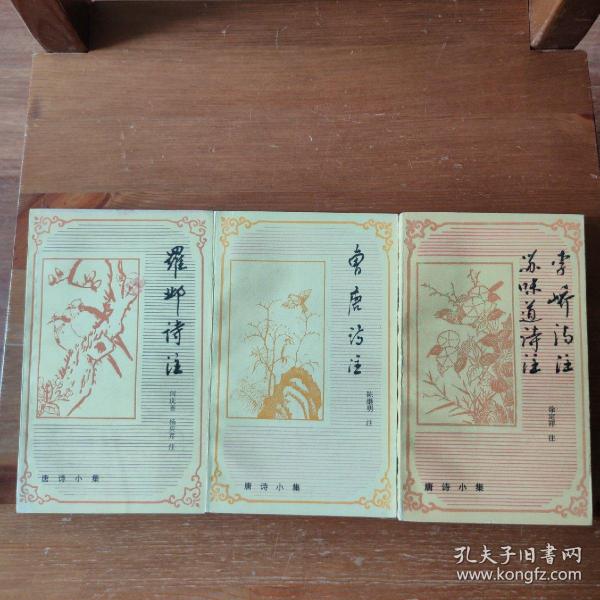 羅邺诗注
何庆善 杨应芹 注
唐诗小集
曹唐诗注
陈继明 注
唐诗小集
李峤诗注
苏味道诗注
徐定祥 注
唐诗小集
孔夫子旧书网
www.kongfz.com